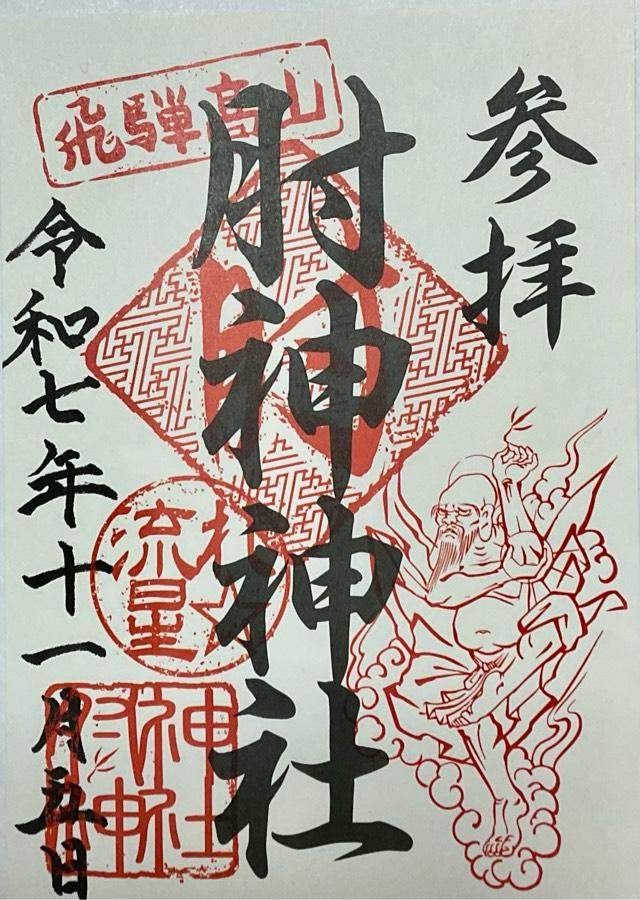 参拝
飛騨高山
肘神神社
流星
肘神
神社
令和七年十一月五日